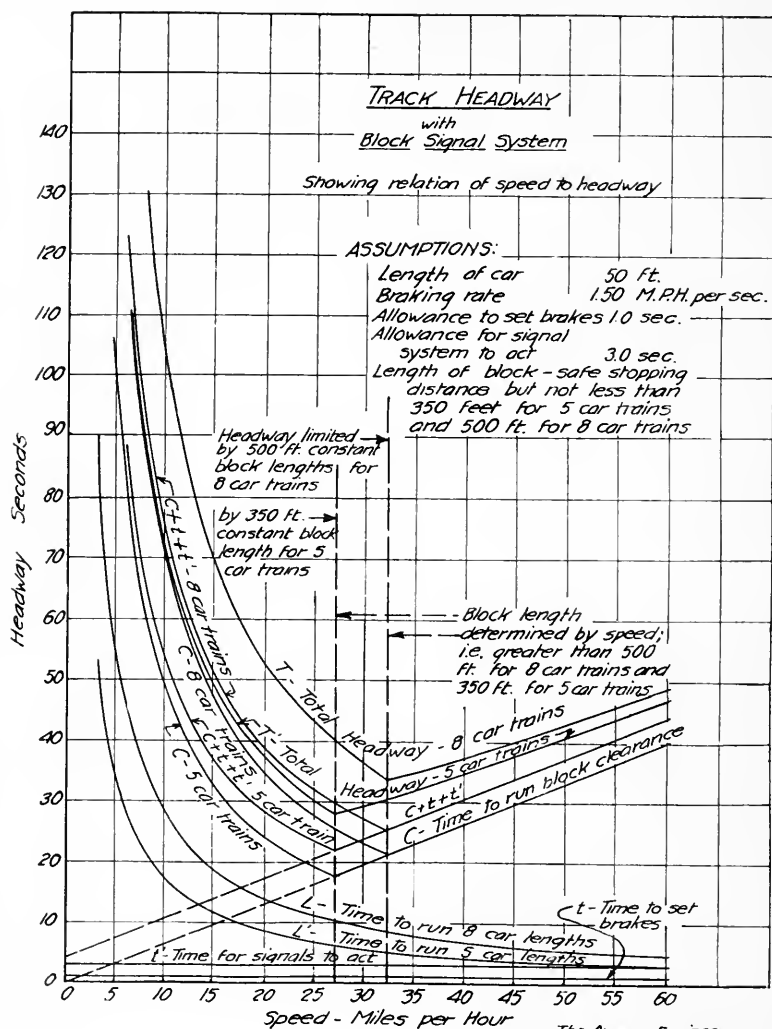 TRACK HEADWAY
with
Block Signal System
Showing relation of speed to headway
ASSUMPTIONS:
Length of car 50 ft.
Braking rate 1.50 M.P.H. per sec.
Allowance to set brakes 1.0 sec.
Allowance for signal
system to act 3.0 sec.
Length of block - safe stopping
distance but not less than
350 feet for 5 car trains
and 500 ft. for 8 car trains
Headway limited
by 500 ft. constant
block lengths for
8 car trains
by 350 ft.
constant block
length for 5
car trains
Block length
determined by speed;
i.e. greater than 500
ft. for 8 car trains and
350 ft. for 5 car trains
C+t+t' - 8 car trains
C - 8 car trains
C - 5 car trains
C+t+t', 5 car train
T - Total Headway - 8 car trains
T' - Total
Headway - 5 car trains
C+t+t'
C - Time to run block clearance
L - Time to run 8 car lengths
L' - Time to run 5 car lengths
t' - Time for signals to act
t - Time to set
brakes
Headway Seconds
140
130
120
110
100
90
80
70
60
50
40
30
20
10
0
0 5 10 15 20 25 30 35 40 45 50 55 60
Speed - Miles per Hour